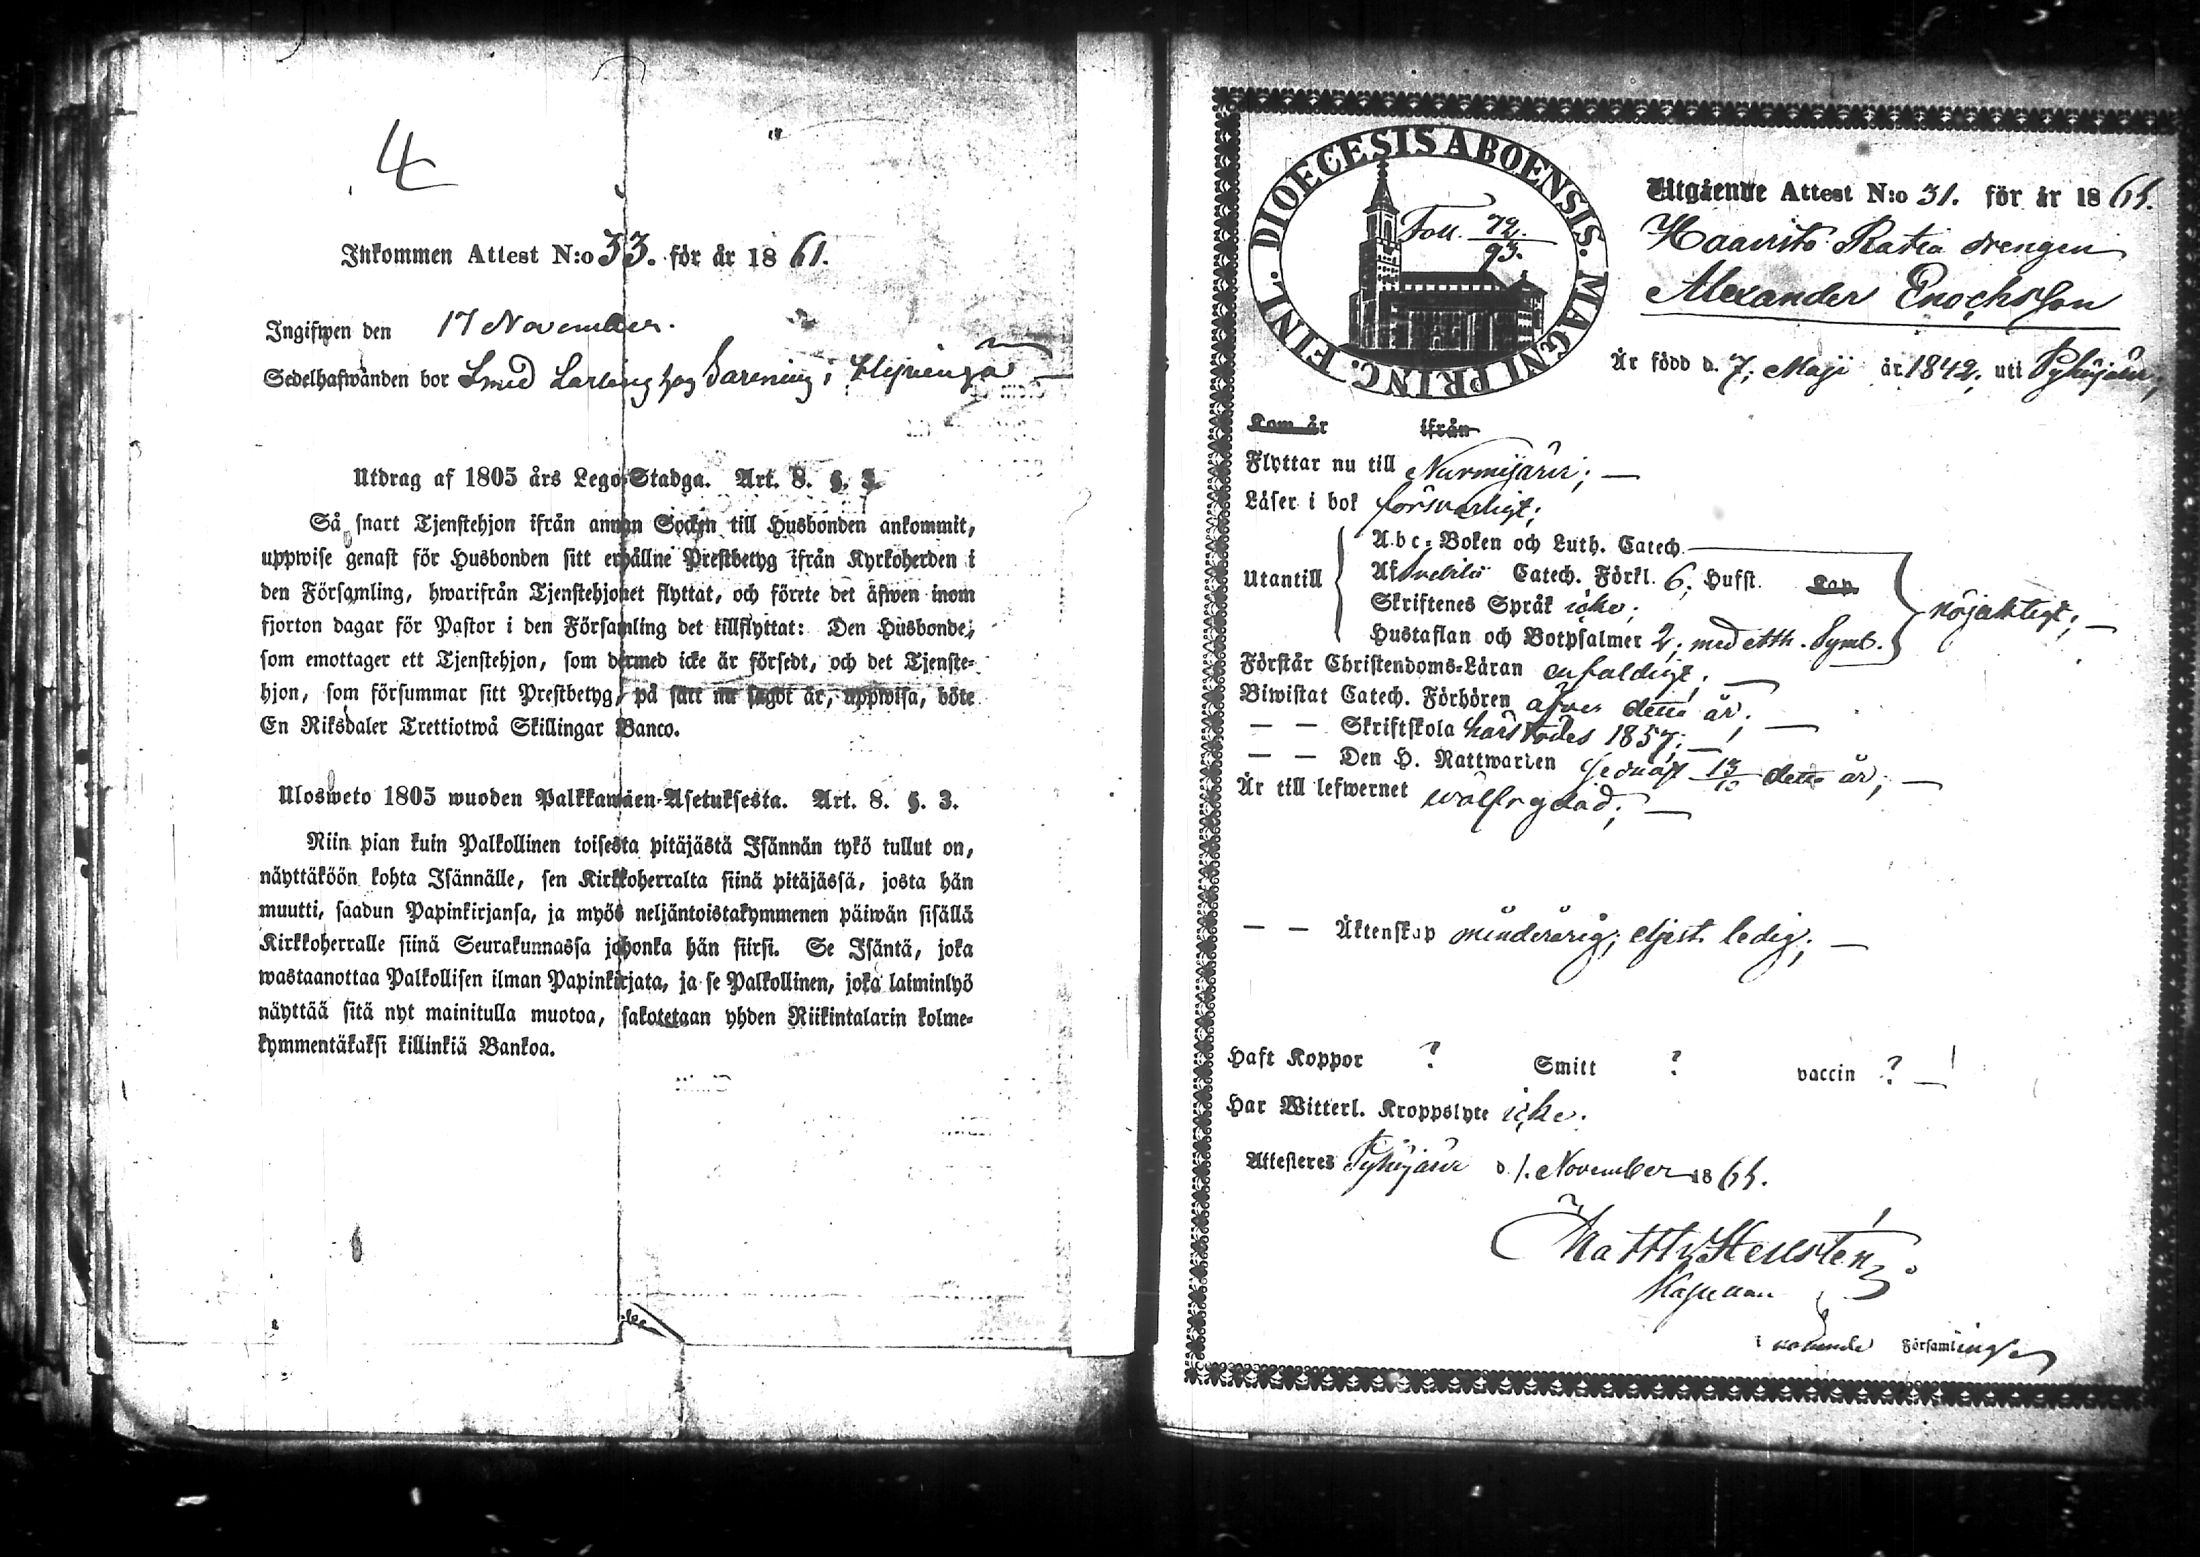 4
Inkommen Attest N:o 33. för år 1861.
Ingifwen den 17 November.
Sedelhafwanden bor Smed Lärling hos i
Utdrag af 1805 års Lego-Stadga. Art. 8. §. 3.
Så snart Tjenstehjon ifrån annan Socken till Husbonden ankommit,
uppwise genast för Husbonden sitt erhållne Prestbetyg ifrån Kyrkoherden i
den Församling, hwarifrån Tjenstehjonet flyttat, och förete det äfwen inom
fjorton dagar för Pastor i den Församling det tillflyttat: Den Husbonde,
som emottager ett Tjenstehjon, som dermed icke är försedt, och det Tjenste-
hjon, som försummar sitt Prestbetyg, på sätt nu sagdt är, uppwisa, böte
En Riksdaler Trettiotwå Skillingar Banco.
Ulosweto 1805 wuoden Palkkawäen-Asetuksesta. Art. 8. §. 3.
Niin pian kuin Palkollinen toisesta pitäjästä Isännän tykö tullut on,
näyttäköön kohta Isännälle, sen Kirkkoherralta siinä pitäjässä, josta hän
muutti, saadun Papinkirjansa, ja myös neljäntoistakymmenen päiwän sisällä
Kirkkoherralle siinä Seurakunnassa johonka hän siirsi. Se Isäntä, joka
wastaanottaa Palkollisen ilman Papinkirjata, ja se Palkollinen, joka laiminlyö
näyttää sitä nyt mainitulla muotoa, sakotetaan yhden Riikintalarin kolme-
kymmentäkaksi killinkiä Bankoa.
FINL. DIOECESIS ABOENSIS. MAGNI PRINC.
Foll. 72.
93.
Utgående Attest N:o 31. för år 1861.
Haavisto Ratia drengen
Alexander Enochsson
Är född d. 7. Maji år 1842. uti Pyhäjärvi,
Kom år ifrån
Flyttar nu till Nurmijärvi; —
Läser i bok försvarligt;
Utantill
A-b-c-Boken och Luth. Catech.
Af Svebilii Catech. Förkl. 6. Hufst. Cap.
Skriftenes Språk icke;
Hustaflan och Botpsalmer 2. med Ath. Symb.
nöjaktigt; —
Förstår Christendoms-Läran enfaldigt; —
Biwistat Catech. Förhören äfven detta år; —
— — Skriftskola härstädes 1857; —
— — Den H. Nattwarden sednast 13/10 detta år; —
Är till lefwernet wälfrejdad; —
— — Äktenskap minderårig, ledig; —
Haft Koppor ? Smitt ? vaccin ? — !
Har Witterl. Kroppslyte icke.
Attesteres Pyhäjärvi d. 1. November 1861.
Matth. Hellstén
Kapellan
i Församlingen